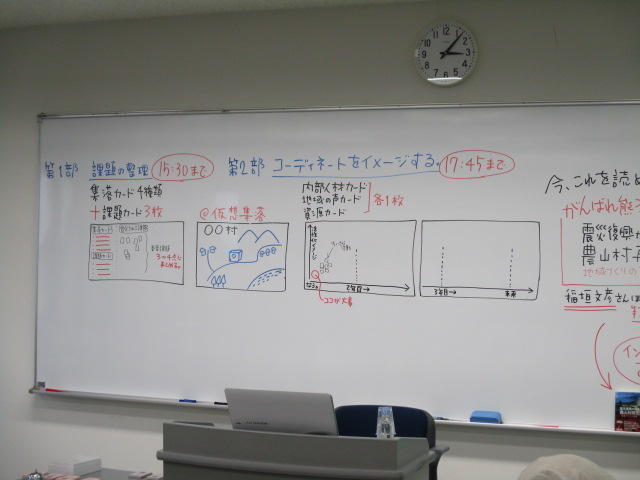 第1部 課題の整理 15:30まで
集落カード4種類
+課題カード3枚
集落カード
課題カード
@仮想集落
〇〇村
第2部 コーディネートをイメージする。 17:45まで
内部人材カード
地域の声カード
資源カード
各1枚
2年目→
ココが大事
3年目→
未来
今、これを読め
がんばれ熊
震災復興が
農山村再
地域づくりの
稲垣文彦さんは
イン